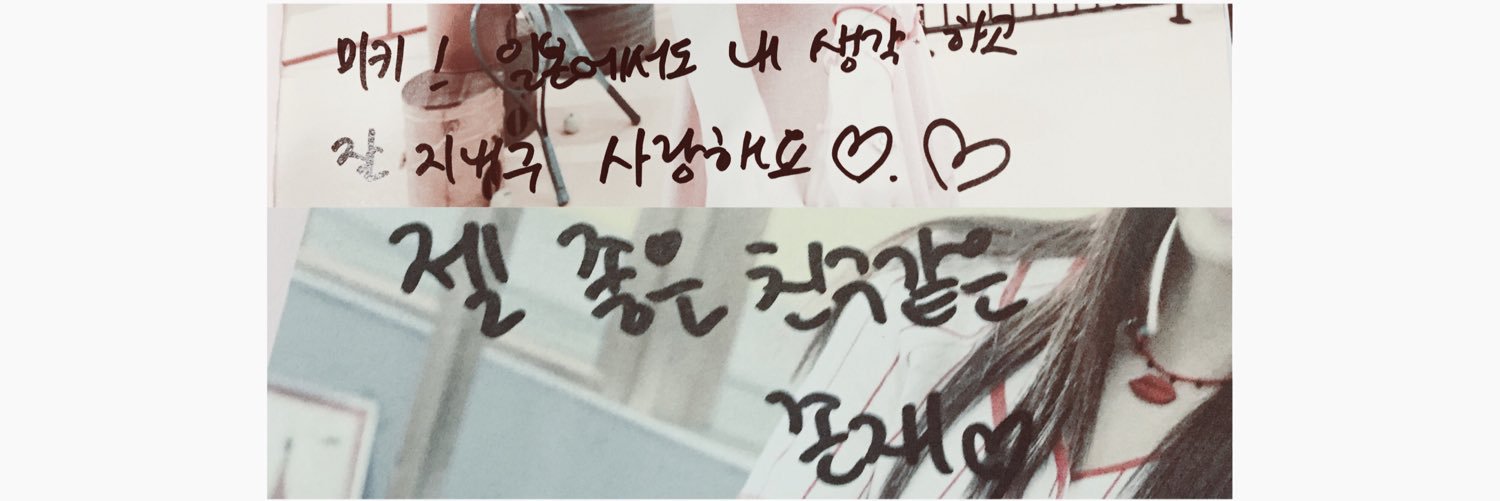 미키! 일본에서도 내 생각 하고
잘 지내구 사랑해요♡.♡
젤 좋은 친구같은
존재♡